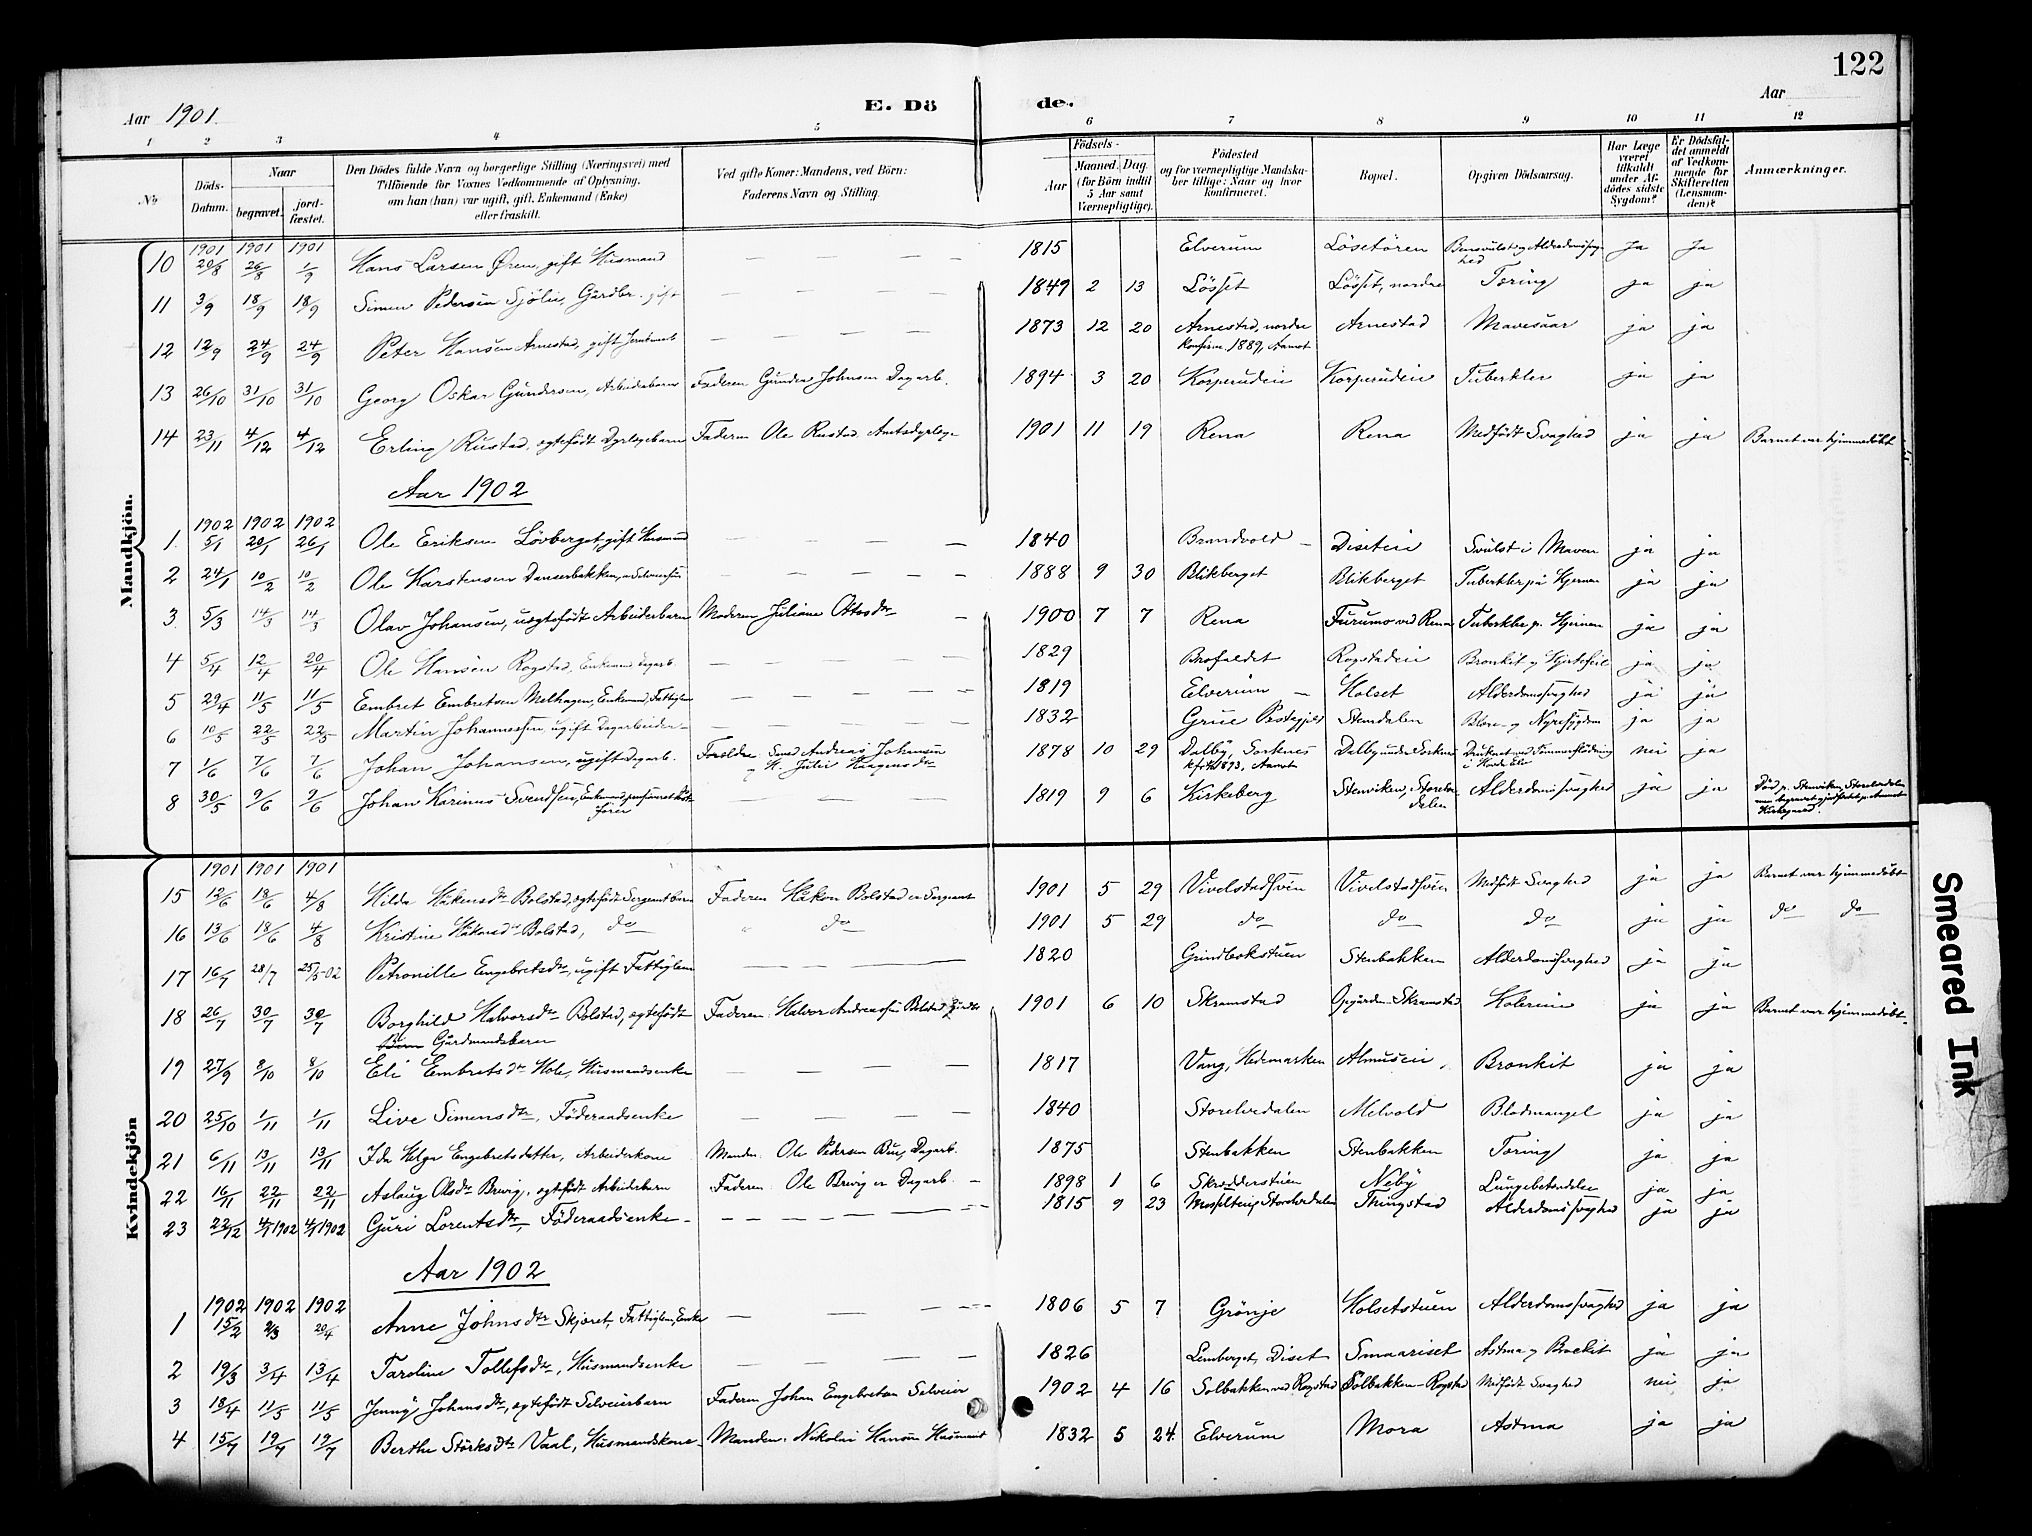 122
Aar 1901.
E. Dö de.
Aar
1 2 3 4 5 6 7 8 9 10 11 12
No
Döds-Datum.
Naar
begravet. jordfæstet.
Den Dödes fulde Navn og borgerlige Stilling (Næringsvei) med Tilföiende for Voxnes Vedkommende af Oplysning, om han (hun) var ugift, gift, Enkemand (Enke) eller fraskilt.
Ved gifte Koner: Mandens, ved Börn: Faderens Navn og Stilling.
Födsels-
Aar Maaned. Dag.
(for Börn indtil 5 Aar samt Værnepligtige).
Födested og for værnepligtige Mandskaber tillige: Naar og hvor konfirmeret.
Bopæl.
Opgiven Dödsaarsag.
Har Læge været tilkaldt under Afdödes sidste Sygdom?
Er Dödsfaldet anmeldt af Vedkommende for Skifteretten (Lensmanden)?
Anmærkninger.
Mandkjön.
1901 1901 1901
10 20/8 26/8 1/9 Hans Larsen Øren, gift Husmand — — — — 1815 Elverum Lösetören Alderdomssvaghed Ja Ja
11 3/9 18/9 18/9 Simen Pedersen Sjölie, Gardbr. gift — — — — 1849 2 13 Lösset Lösset, nordre Tæring ja ja
12 12/9 24/9 24/9 Peter Hansen Arnestad, gift — — — — 1873 12 20 Arnestad, nordre Konfirm. 1889, Aamot Arnestad Mavesaar ja ja
13 26/10 31/10 31/10 Georg Oskar Gundersen, Arbeiderbarn Faderen Gunder Johnsen Dagarb. 1894 3 20 Korperudeie Korperudeie Tuberkler ja ja
14 23/11 4/12 4/12 Erling Rustad, ægtefödt Dyrlægebarn Faderen Ole Rustad, Amtsdyrlæge 1901 11 19 Rena Rena Medfödt Svaghed ja ja Barnet var hjemmedöbt
Aar 1902
1902 1902 1902
1 5/1 20/1 26/1 Ole Eriksen Lövberget, gift Husmand — — — — 1840 Brandvold — Diseteie Svulst i Maven ja ja
2 24/1 10/2 10/2 Ole Karstensen Danserbakken, — — — — 1888 9 30 Blikberget Blikberget Tuberkler på Hjernen ja ja
3 5/3 14/3 14/3 Olav Johansen, uægtefödt Arbeiderbarn Moderen Juliane Ottosdtr — 1900 7 7 Rena Furumo ved Rena Tuberkler p. Hjernen ja ja
4 5/4 12/4 20/4 Ole Hansen Rogstad, Enkemand Dagarb. — — — — 1829 Brofaldet Rogstadeie Bronkit og Hjertefeil ja ja
5 29/4 11/5 11/5 Embret Embretsen Melhagen, Enkemand, Fattiglem — — — — 1819 Elverum — Holset Alderdomssvaghed ja ja
6 10/5 22/5 22/5 Martin Johannessen, ugift Dagarbeider — — — — 1832 Grue Prestegjeld Stendalen Blære- og Nyresygdom ja ja
7 1/6 7/6 7/6 Johan Johansen, ugift Dagarb. Forældre: Smed Andreas Johansen og H. Julie Haagensdtr 1878 10 29 Dalby, Sorknes Aamot Dalby under Sorknes Druknet ved Tömmerflödning i nei ja
8 30/5 9/6 9/6 Johan Karinus Svendsen, Enkemand, — — 1819 9 6 Kirkeberg Stenviken, Storelvdalen Alderdomssvaghed ja ja Död p. Stenviken, Storelvdalen men begravet og jordfæstet p. Aamot Kirkegaard.
Kvindekjön
1901 1901 1901
15 12/6 18/6 4/8 Hilda Håkensdtr Bolstad, ægtefödt Sergeantbarn Faderen Håkon Bolstad er Sergeant 1901 5 29 Vivelstadsveen Vivelstadsveen Medfödt Svaghed ja ja Barnet var hjemmedöbt
16 13/6 18/6 4/8 Kristine Håkonsdtr Bolstad, do " do 1901 5 29 do do do ja ja do do
17 16/7 28/7 25/5-02 Petronille Engebretsdtr, ugift Fattiglem — — — 1820 Grindbakstuen Stenbakken Alderdomssvaghed ja ja
18 26/7 30/7 30/7 Borghild Halvorsdtr Bolstad, ægtefödt Gårdmandsbarn Faderen Halvor Andreassen Bolstad 1901 6 10 Skramstad Opgården Skramstad Kolerine ja ja Barnet var hjemmedöbt.
19 27/9 8/10 8/10 Eli Embretsdtr Hole, Husmandsenke — — — — 1817 Vang, Hedemarken Almuseie Bronkit ja ja
20 25/10 1/11 1/11 Live Simensdtr, Föderaadsenke — — — — 1840 Storelvedalen Melvold Blodmangel ja ja
21 6/11 13/11 13/11 Ida Helga Engebretsdatter, Arbeiderkone Manden Ole Pedersen Bue, Dagarb. 1875 Stenbakken Stenbakken Tæring ja ja
22 16/11 22/11 22/11 Aslaug Olsdtr Brevig, ægtefödt Arbeiderbarn Faderen Ole Brevig er Dagarb. — 1898 1 6 Skrædderstuen Neby Lungebetændelse ja ja
23 22/12 4/1 1902 4/1 1902 Guri Lorentsdtr, Föderaadsenke — — — — 1815 9 23 Storelvedalen Tningstad Alderdomssvaghed ja ja
Aar 1902
1902 1902 1902
1 15/2 2/3 20/4 Anne Johnsdtr Skjæret, Fattiglem, Enke — — — 1806 5 7 Grönje Holsetstuen Alderdomssvaghed ja ja
2 19/3 3/4 13/4 Taroline Tollefsdtr, Husmandsenke — — — — 1826 Lemberget, Diset Smaariset Astma og Bronkit ja ja
3 18/4 11/5 11/5 Jenny Johansdtr, ægtefödt Selveierbarn Faderen Johan Engebretsen Selveier 1902 4 16 Solbakken ved Rogstad Solbakken-Rogstad Medfödt Svaghed nei ja
4 15/7 19/7 19/7 Berthe Störksdtr Vaal, Husmandskone Manden: Nikolai Hansen Husmand 1832 5 24 Elverum Mora Astma ja ja
Smeared Ink